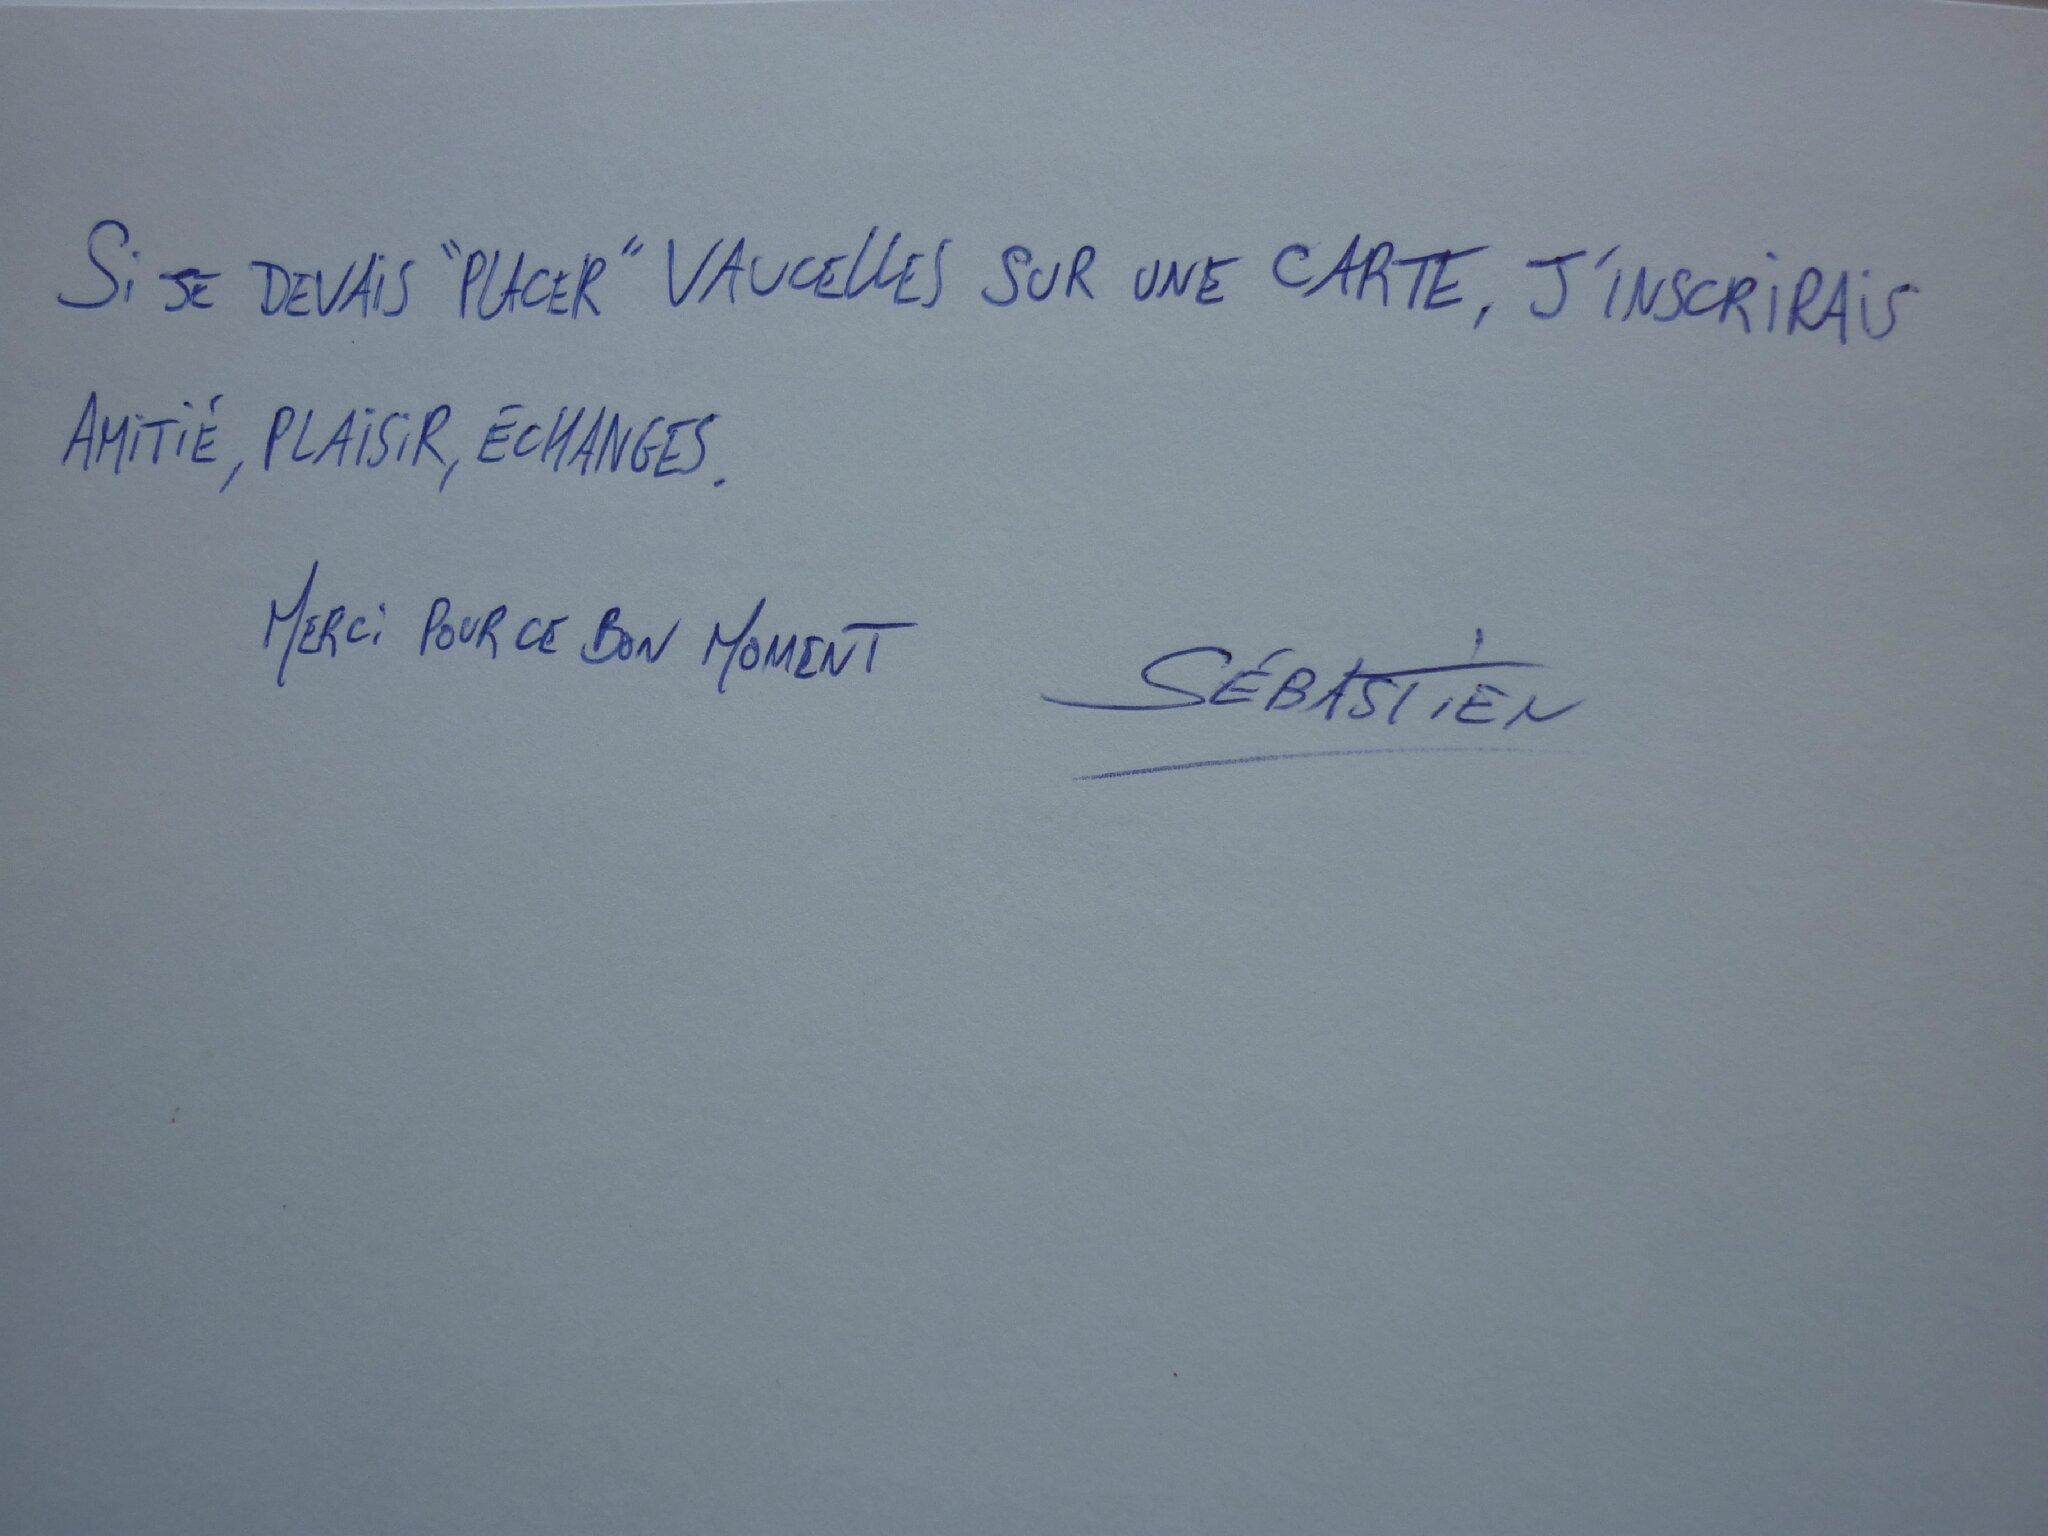 Si JE DEVAiS "PLACER" VAUCELLES SUR UNE CARTE, J'INSCRiRAiS
AMiTiÉ, PLAiSiR, ÉCHANGES.
MERCi POUR CE BON MOMENT
SÉBASTiEN